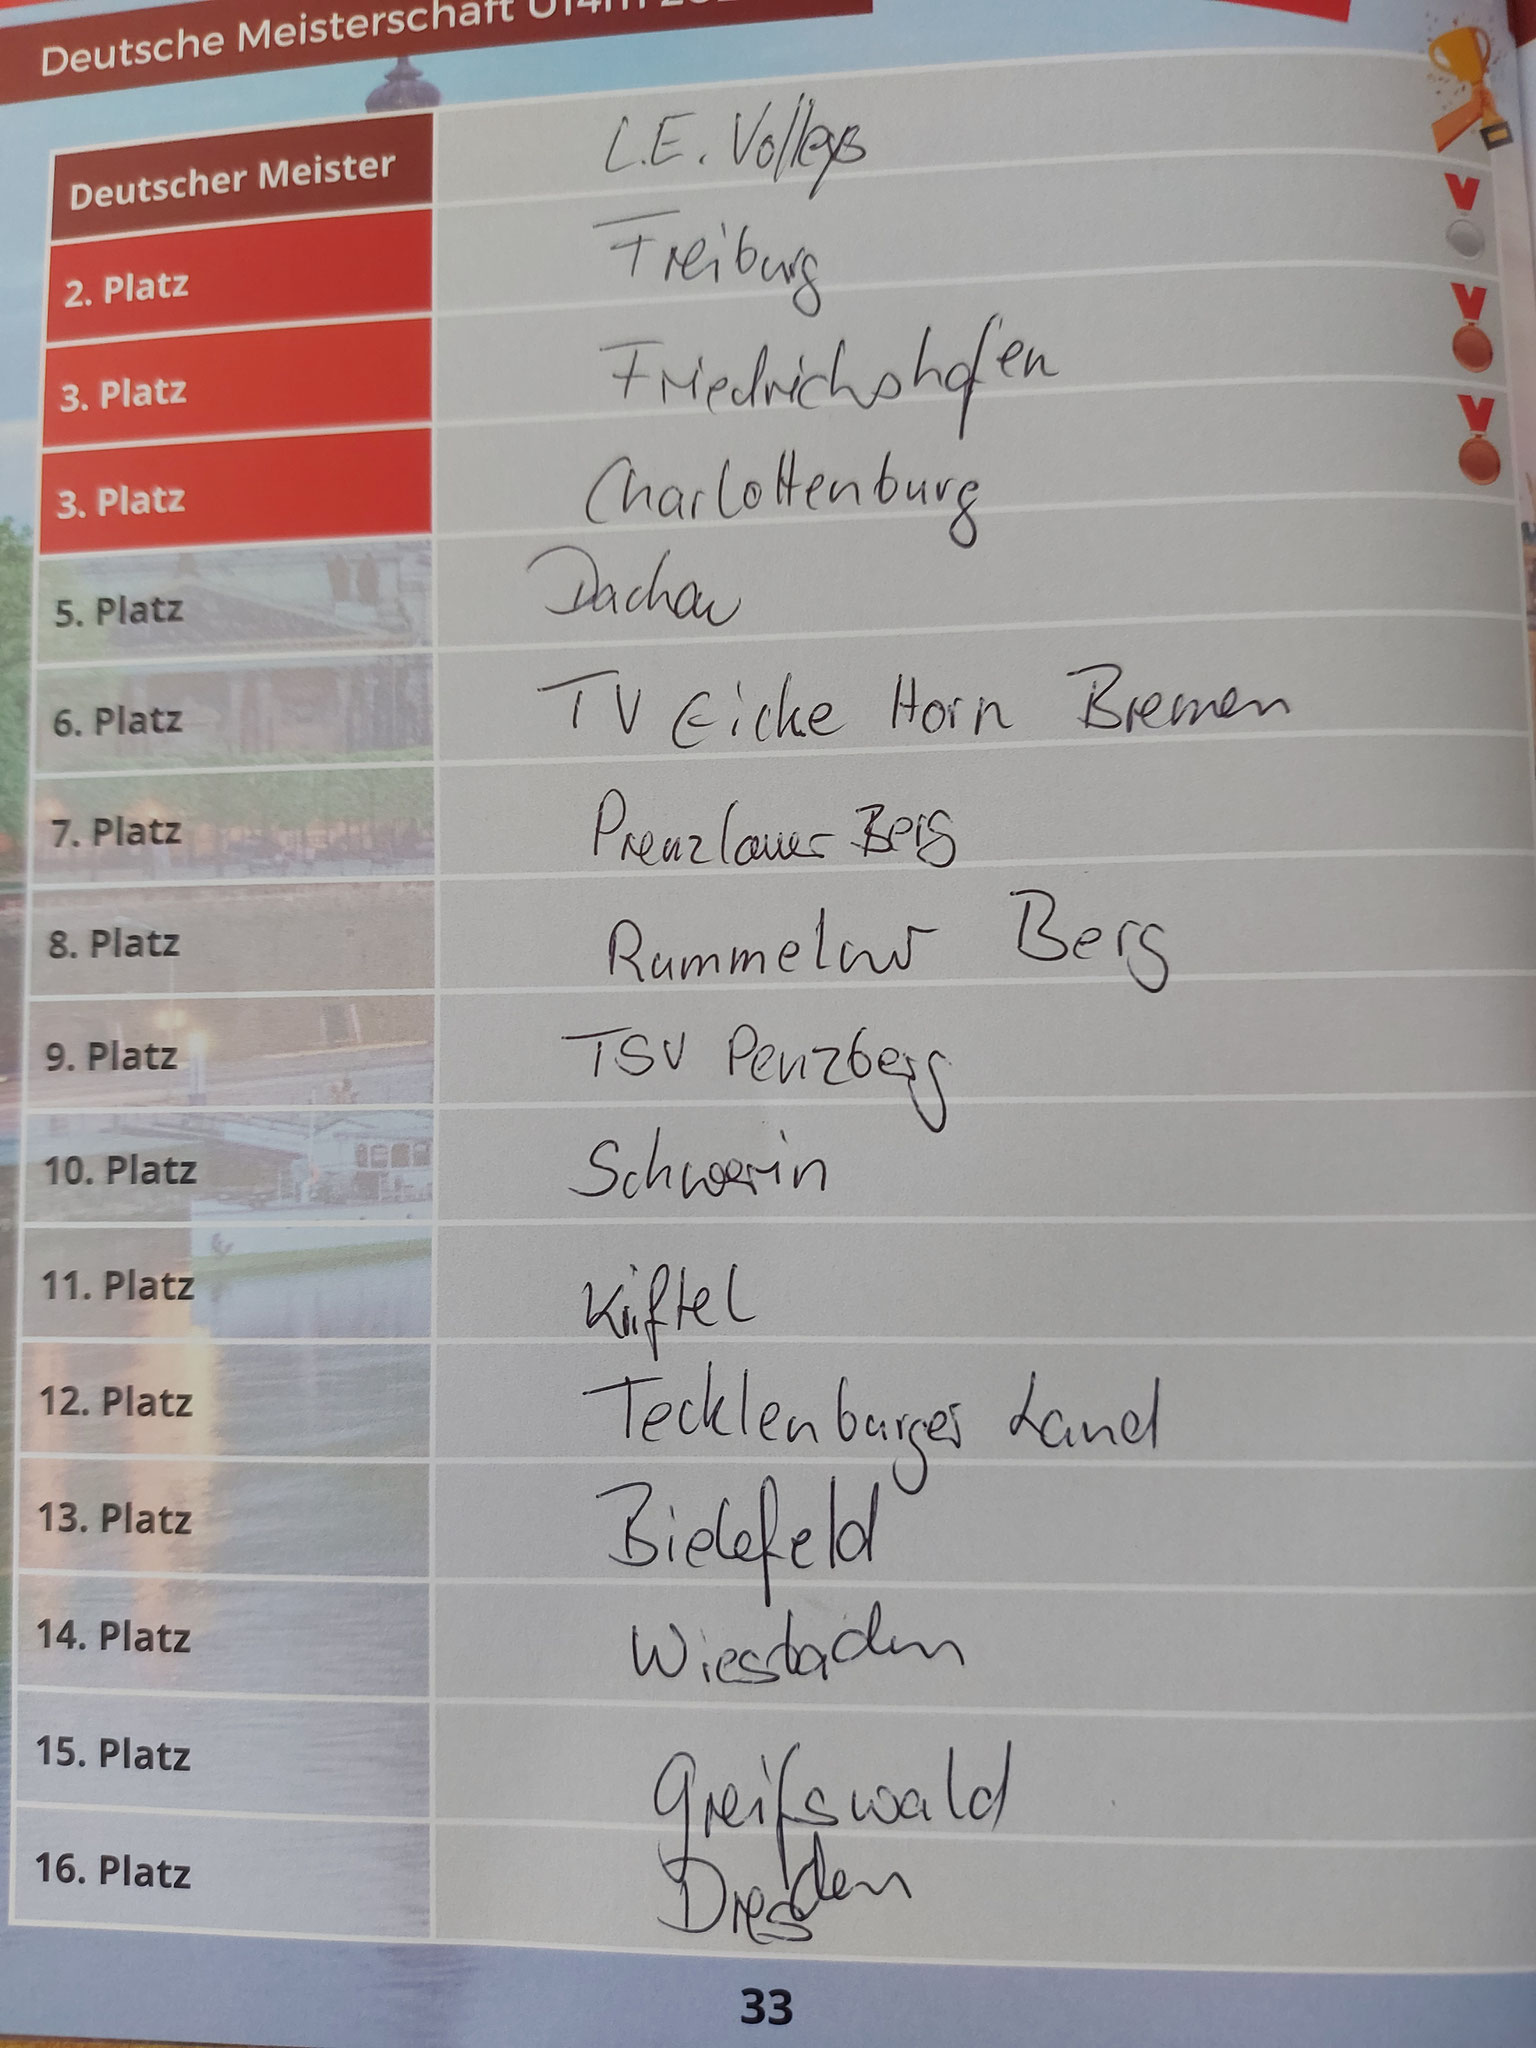 Deutsche Meisterschaft U14m
Deutscher Meister L.E. Volleys
2. Platz Freiburg
3. Platz Friedrichshafen
3. Platz Charlottenburg
5. Platz Dachau
6. Platz TV Eiche Horn Bremen
7. Platz Prenzlauer Berg
8. Platz Berg
9. Platz TSV Penzberg
10. Platz Schwerin
11. Platz Kriftel
12. Platz Tecklenburger Land
13. Platz Bielefeld
14. Platz Wiesbaden
15. Platz Greifswald
16. Platz Dresden
33